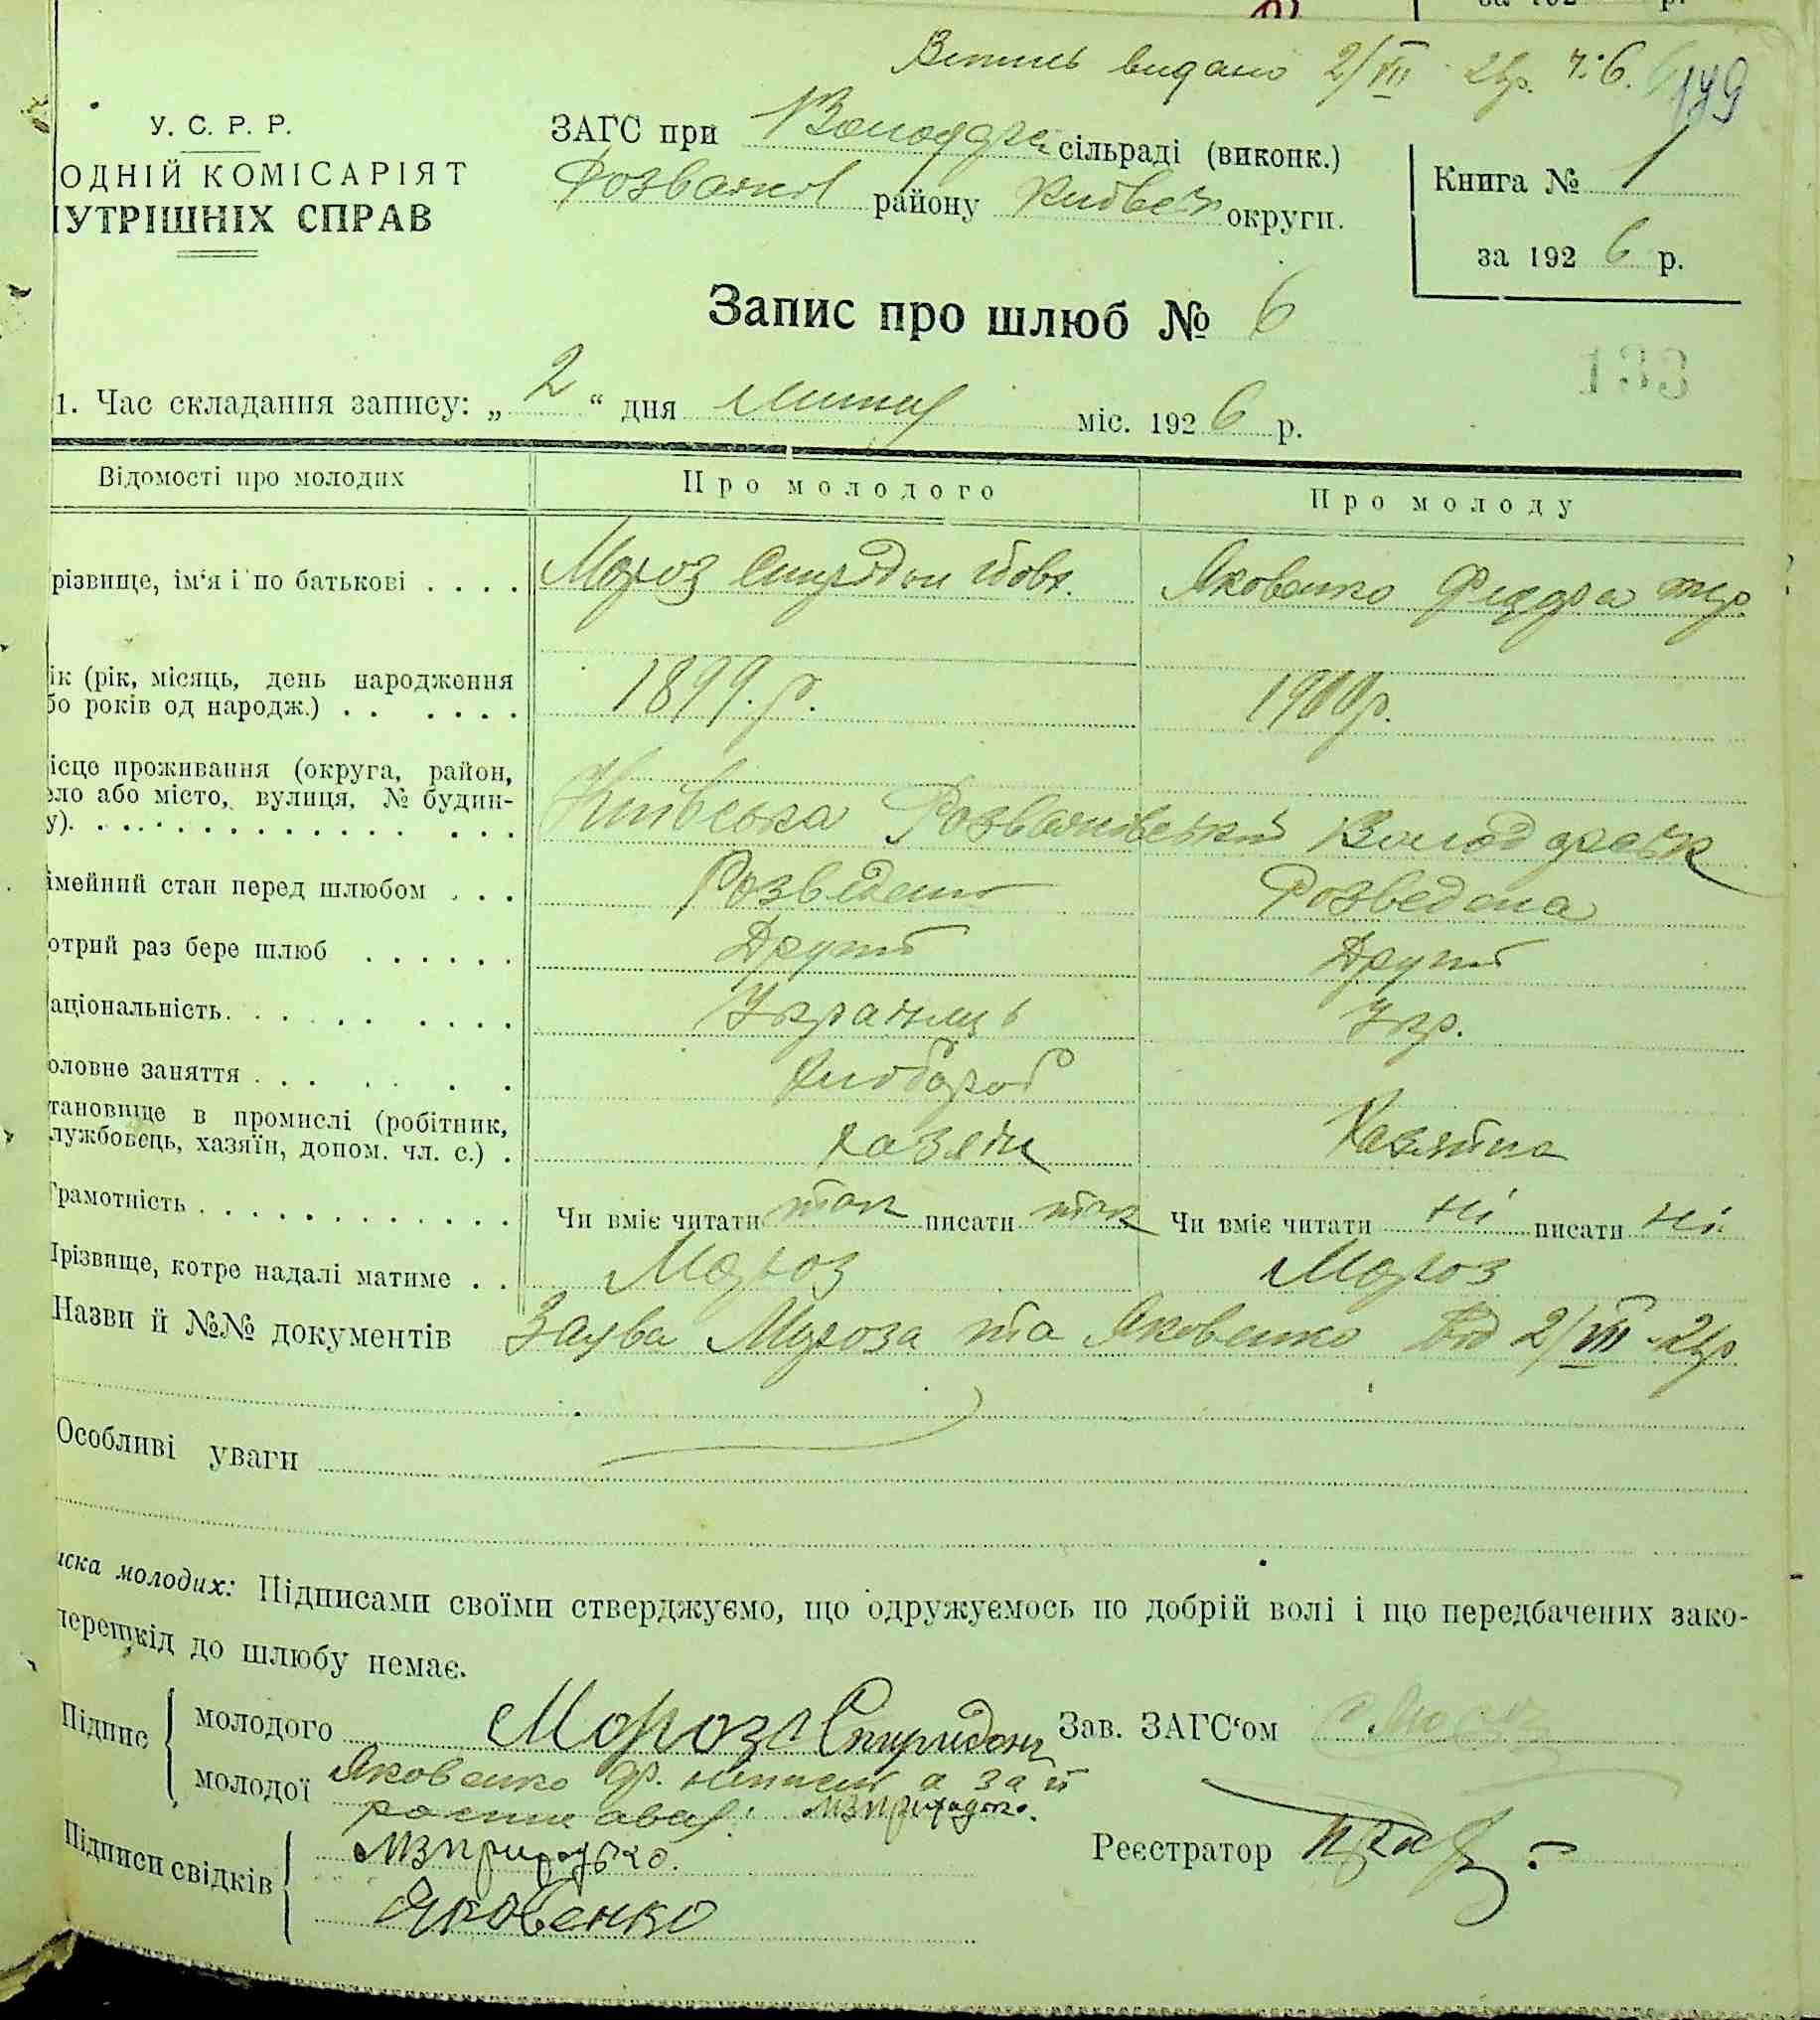 за 192 р.
Витись видано 2/VII 26р. ч. 6.
199
У. С. Р. Р.
ОДНІЙ КОМІСАРІЯТ
УТРІШНІХ СПРАВ
ЗАГС при Володарс. сільраді (виконк.)
Розважів району Київськ округи.
Книга № 1
за 192 6 р.
Запис про шлюб № 6
133
1. Час складання запису: „ 2 “ дня липця міс. 192 6 р.
Відомості про молодих Про молодого Про молоду
різвище, ім‘я і по батькові . . . . Мороз Спиридон Яковенко
ік (рік, місяць, день народження
бо років од народж.) . . . . . . 1899. р. 1900р.
ісце проживання (округа, район,
ело або місто, вулиця, № будин-
у). . . . Київська Розважівський Володарськ
імейний стан перед шлюбом . . . Розведено Розведена
отрий раз бере шлюб . . . . . . Другий Другий
аціональність. . . . . . . . . . Українець Укр.
оловне заняття . . . . . . Хлібороб
тановище в промислі (робітник,
лужбовець, хазяїн, допом. чл. с.) . хазяїн Хазяйка
Грамотність . . . . . . . . . . . . Чи вміє читати так писати так Чи вміє читати ні писати ні
Прізвище, котре надалі матиме . . Мороз Мороз
Назви й №№ документів Заява Мороза та Яковенко від 2/VII 26р
Особливі уваги
иска молодих: Підписами своїми стверджуємо, що одружуємось по добрій волі і що передбачених зако-
перешкід до шлюбу немає.
Підпис молодого Мороз Спиридон Зав. ЗАГС‘ом
молодої Яковенко а за її
Підписи свідків Реєстратор
Яковенко